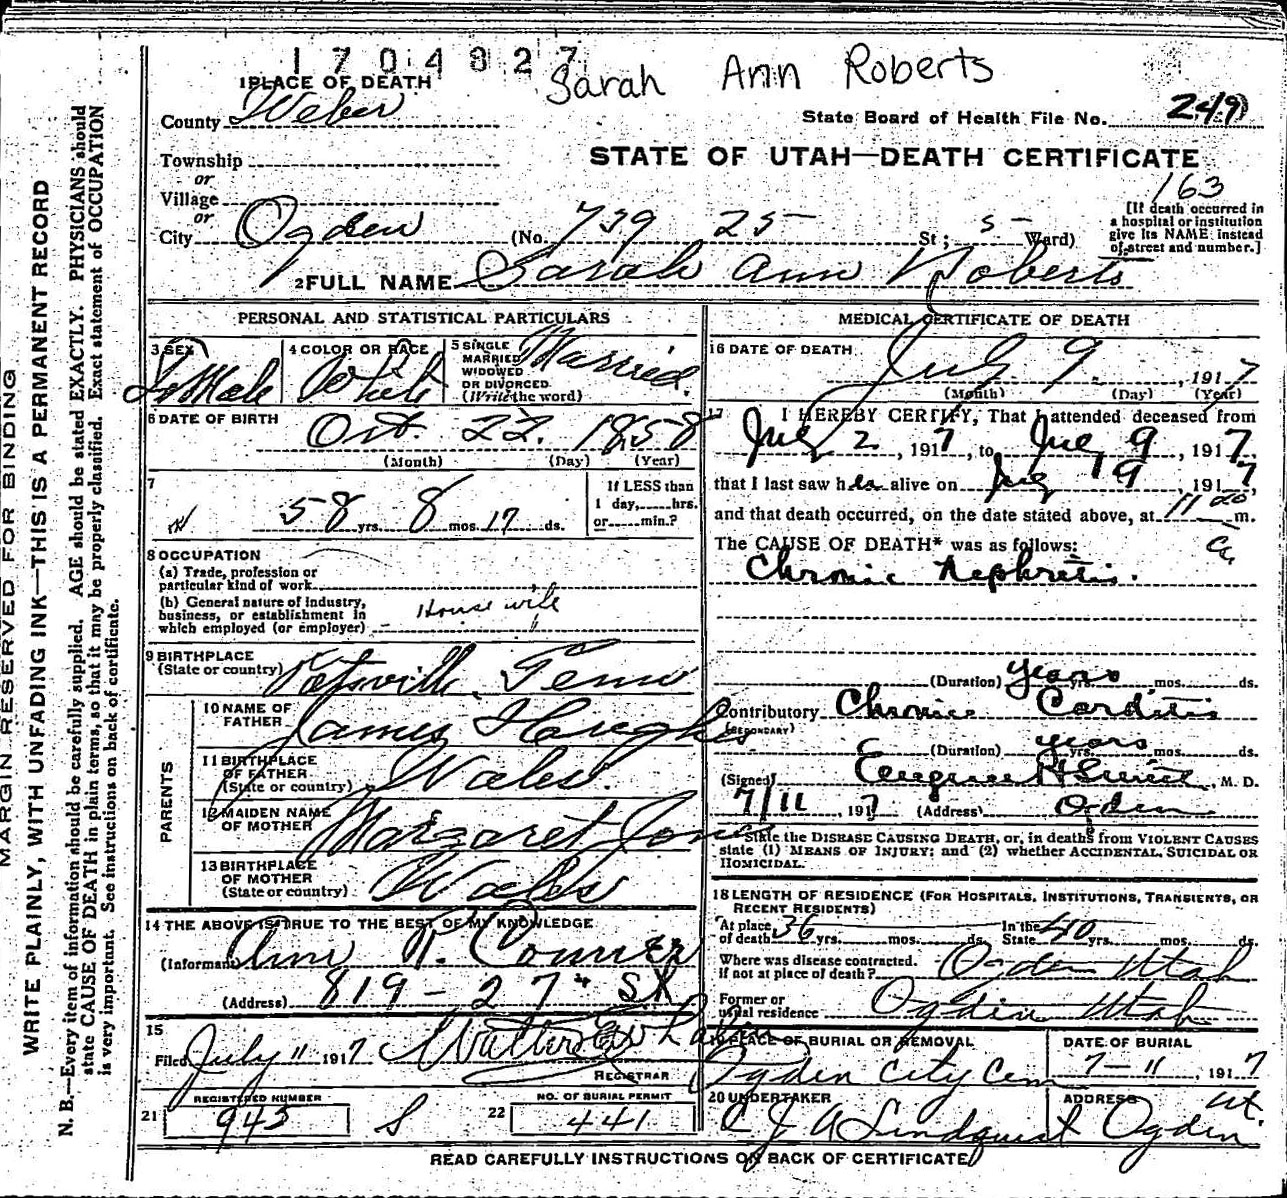 1704827
Sarah Ann Roberts
1 PLACE OF DEATH
County Weber
State Board of Health File No. 249
Township
or
STATE OF UTAH—DEATH CERTIFICATE
Village
or
163
[If death occurred in a hospital or institution give its NAME instead of street and number.]
City Ogden (No. 739 25 St; 5 Ward)
2 FULL NAME Sarah Ann Roberts
PERSONAL AND STATISTICAL PARTICULARS
3 SEX Female
4 COLOR OR RACE White
5 SINGLE MARRIED WIDOWED OR DIVORCED (Write the word) Married
6 DATE OF BIRTH Oct. 22. 1858
(Month) (Day) (Year)
7 58 yrs. 8 mos. 17 ds.
If LESS than 1 day, hrs. or min.?
8 OCCUPATION
(a) Trade, profession or particular kind of work
(b) General nature of industry, business, or establishment in which employed (or employer) House wife
9 BIRTHPLACE (State or country) Tenn
10 NAME OF FATHER James
11 BIRTHPLACE OF FATHER (State or country) Wales.
12 MAIDEN NAME OF MOTHER Margaret Jones
13 BIRTHPLACE OF MOTHER (State or country) Wales
PARENTS
14 THE ABOVE IS TRUE TO THE BEST OF MY KNOWLEDGE
(Informant) Ann R.
(Address) 819 - 27th St
15
Filed July 11 1917
REGISTRAR
REGISTERED NUMBER
21 943 S
NO. OF BURIAL PERMIT
22 441
MEDICAL CERTIFICATE OF DEATH
16 DATE OF DEATH July 9. , 1917
(Month) (Day) (Year)
17 I HEREBY CERTIFY, That I attended deceased from
July 2, 1917, to July 9, 1917,
that I last saw her alive on July 9, 1917,
and that death occurred, on the date stated above, at 11 20 a. m.
The CAUSE OF DEATH* was as follows:
Chronic Nephritis.
(Duration) years yrs. mos. ds.
Contributory Chronic Carditis
(SECONDARY)
(Duration) years yrs. mos. ds.
(Signed) Eugene H Smith, M. D.
7/11, 1917 (Address) Ogden
*State the DISEASE CAUSING DEATH, or, in deaths from VIOLENT CAUSES
state (1) MEANS OF INJURY; and (2) whether ACCIDENTAL, SUICIDAL OR
HOMICIDAL.
18 LENGTH OF RESIDENCE (FOR HOSPITALS, INSTITUTIONS, TRANSIENTS, OR
RECENT RESIDENTS)
At place of death 36 yrs. mos. ds. In the State 40 yrs. mos. ds.
Where was disease contracted, if not at place of death? Ogden Utah
Former or usual residence Ogden Utah
19 PLACE OF BURIAL OR REMOVAL
Ogden City Cem
DATE OF BURIAL
7-11, 1917
20 UNDERTAKER
C J A Lindquist
ADDRESS
Ogden Ut.
READ CAREFULLY INSTRUCTIONS ON BACK OF CERTIFICATE
MARGIN RESERVED FOR BINDING
WRITE PLAINLY, WITH UNFADING INK—THIS IS A PERMANENT RECORD
N. B.—Every item of information should be carefully supplied. AGE should be stated EXACTLY. PHYSICIANS should
state CAUSE OF DEATH in plain terms, so that it may be properly classified. Exact statement of OCCUPATION
is very important. See instructions on back of certificate.